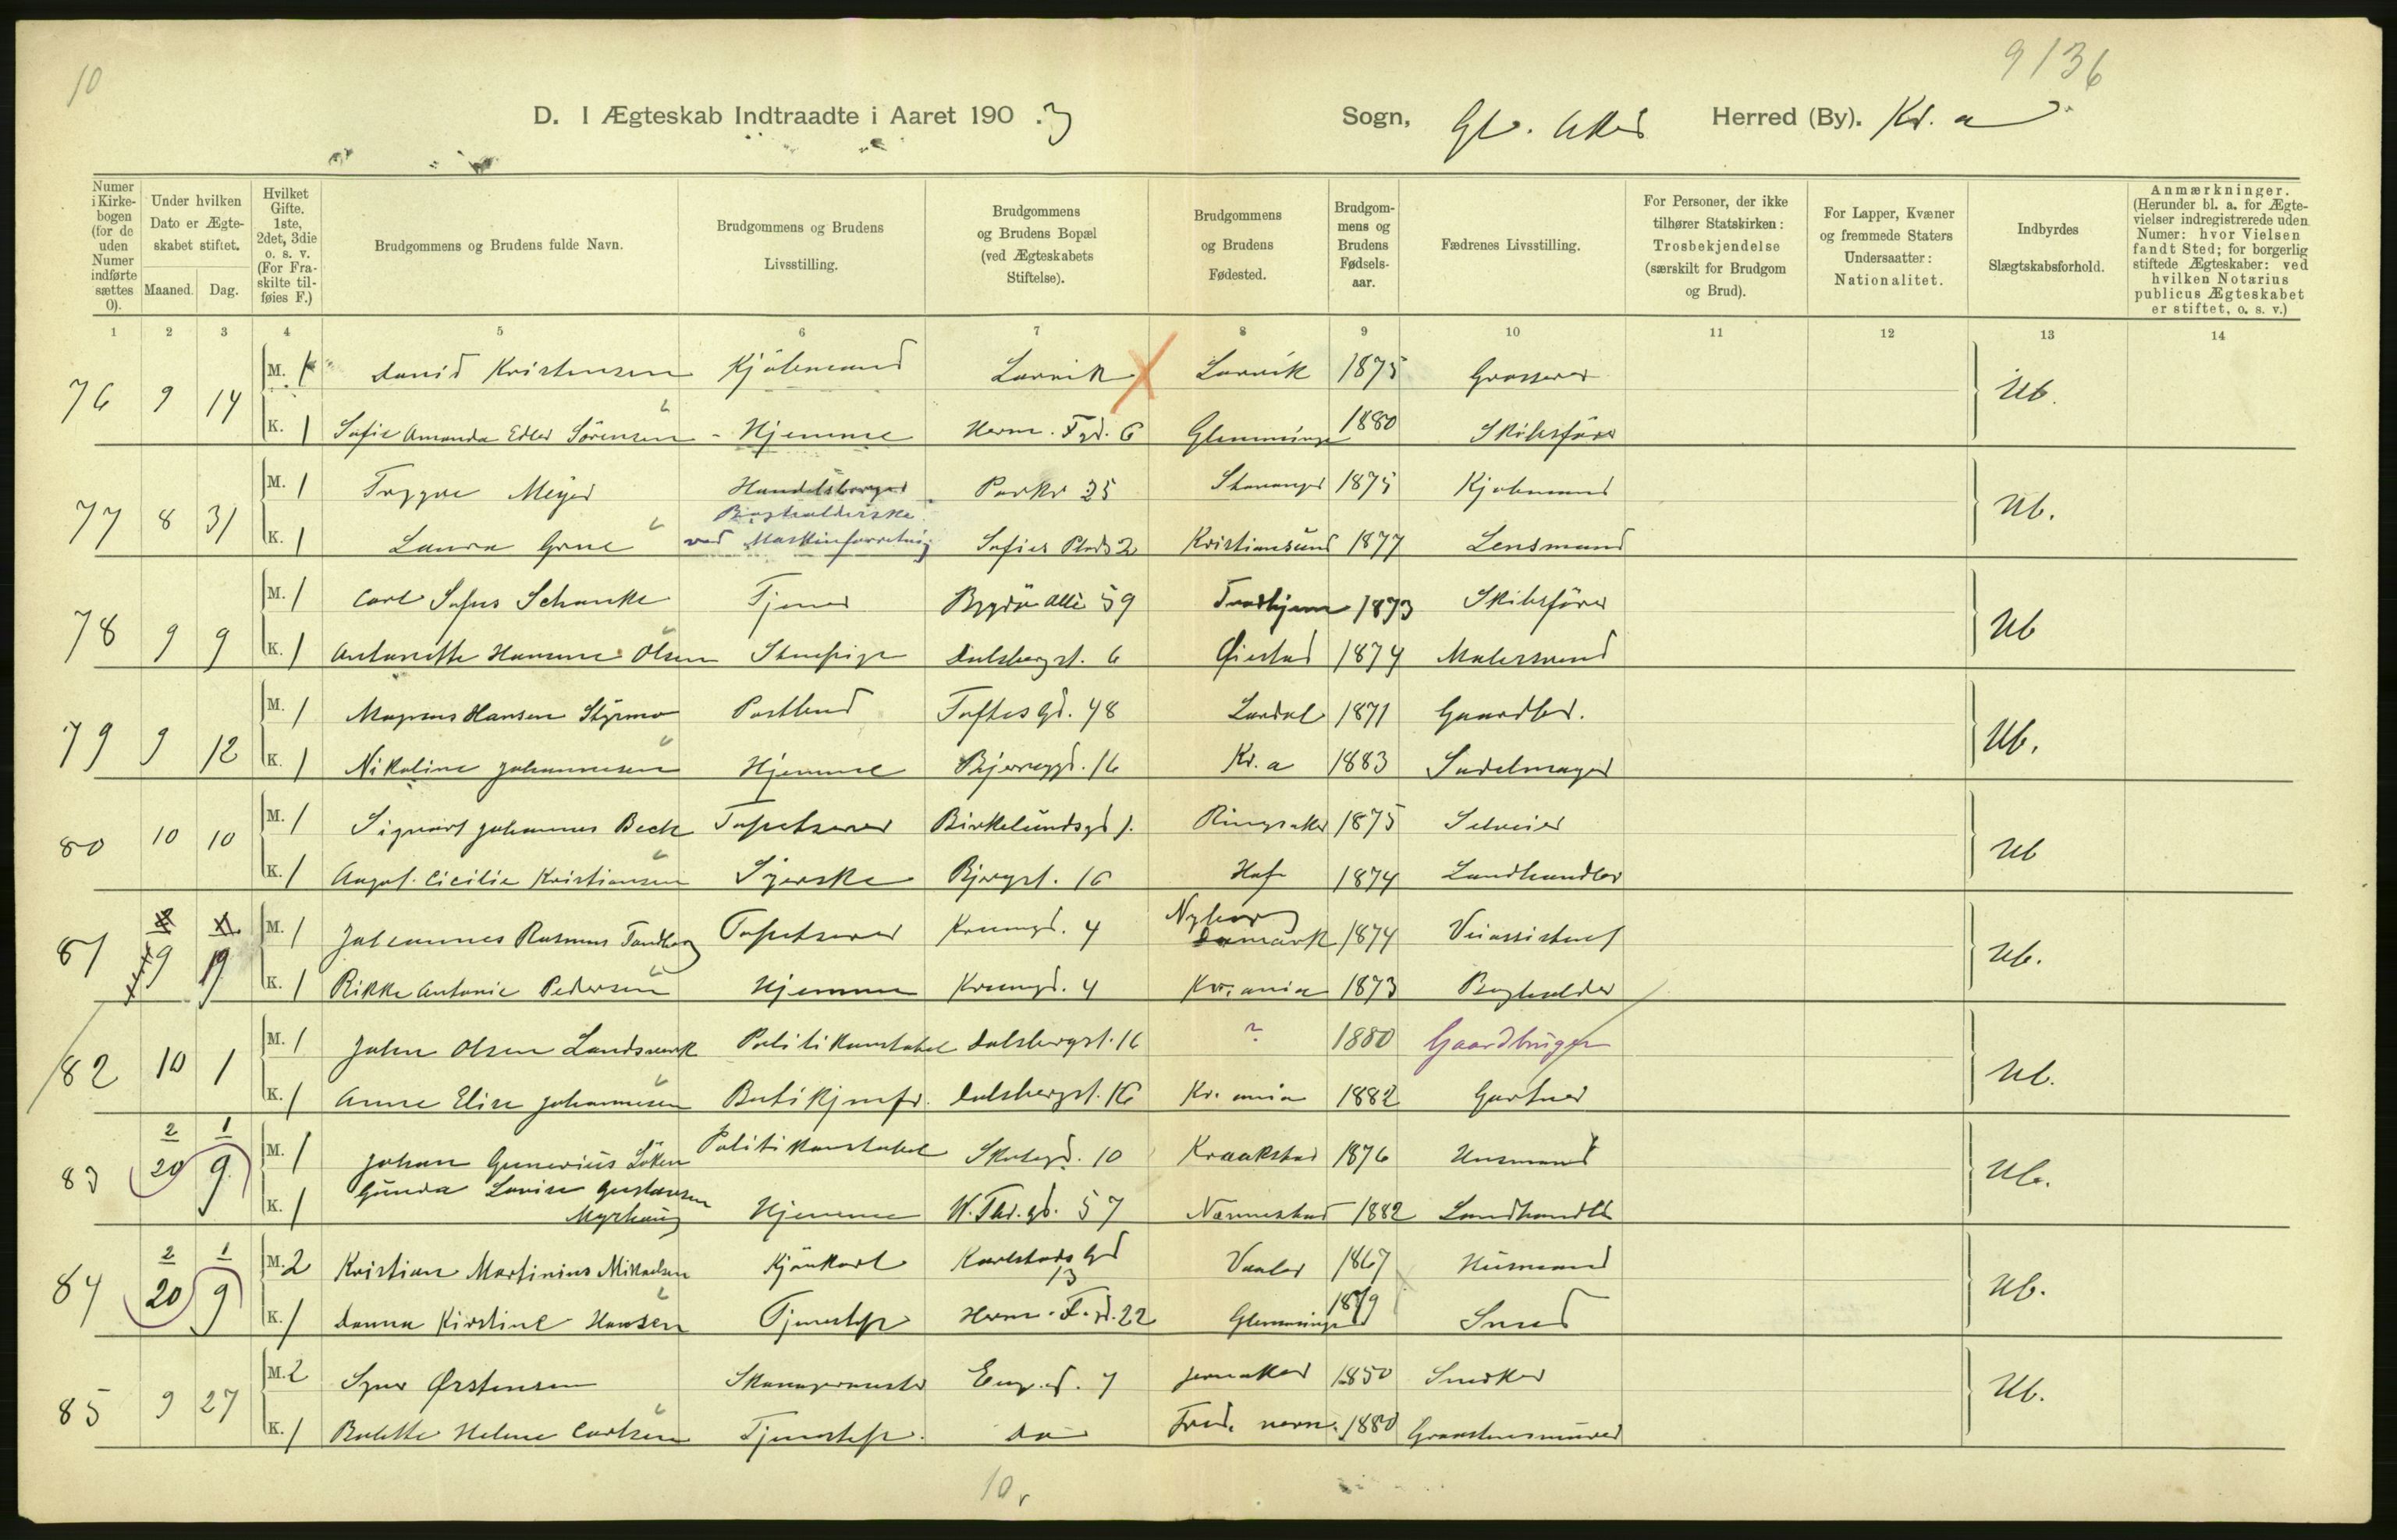 10
9136
D. I Ægteskab Indtraadte i Aaret 190 3 Sogn, Gl. Aker Herred (By). Kr. a
Numer i Kirkebogen (for de uden Numer indførte sættes 0).
Under hvilken Dato er Ægteskabet stiftet.
Maaned. Dag.
Hvilket Gifte. 1ste, 2det, 3die o. s. v. (For Fraskilte tilføies F.)
Brudgommens og Brudens fulde Navn.
Brudgommens og Brudens Livsstilling.
Brudgommens og Brudens Bopæl (ved Ægteskabets Stiftelse).
Brudgommens og Brudens Fødested.
Brudgommens og Brudens Fødselsaar.
Fædrenes Livsstilling.
For Personer, der ikke tilhører Statskirken: Trosbekjendelse (særskilt for Brudgom og Brud).
For Lapper, Kvæner og fremmede Staters Undersaatter: Nationalitet.
Indbyrdes Slægtskabsforhold.
Anmærkninger. (Herunder bl. a. for Ægtevielser indregistrerede uden Numer: hvor Vielsen fandt Sted; for borgerlig stiftede Ægteskaber: ved hvilken Notarius publicus Ægteskabet er stiftet, o. s. v.)
1 2 3 4 5 6 7 8 9 10 11 12 13 14
76 9 14 M. 1 David Kristensen Kjøbmand Larvik Larvik 1875 Grosserer Ub.
K. 1 Sofie Amanda Sörensen Hjemme Herm. Fgd. 6 Glemminge 1880 Skibsförer
77 8 31 M. 1 Trygve Meyer Handelsborger Parkv 25 Stavanger 1875 Kjøbmand Ub.
Bogholderske
K. 1 Laura Grue ved Maskinforretning Sofies Plads 2 Kristiansund 1877 Lensmand
78 9 9 M. 1 Carl Sofus Schanke Tjener Bygdö Allè 59 Trondhjem 1873 Skibsförer Ub
K. 1 Antonette Hansine Olsen Stuepige Dalsbergst. 6 Øiestad 1874 Malersvend
79 9 12 M. 1 Magnus Hansen Styrmo Postbud Toftesgd. 48 Lardal 1871 Gaardbr. Ub.
K. 1 Nikoline Johannesen Hjemme 16 Kr. a 1883 Sadelmager
80 10 10 M. 1 Sigvart Johannes Beck Tapetserer Birkelundsgd 1. Ringsaker 1875 Selveier Ub
K. 1 August. Cicilie Kristiansen Syerske 16 Hof 1874 Landhandler
81 9 19 M. 1 Johannes Rasmus Tandberg Tapetserer 4 Nyborg Danmark 1874 Veiassistent Ub.
K. 1 Rikke Antonie Pedersen Hjemme 4 Kr. ania 1873 Bogholder
82 10 1 M. 1 Johan Olsen Landsverk Politikonstabel Dalsbergst. 16 ? 1880 Gaardbruger Ub.
K. 1 Anne Elise Johannesen Butikjmfr. Dalsbergst. 16 Kr. ania 1882 Gartner
2 1
83 20 9 M. 1 Johan Gunerius Löken Politikonstabel 10 Kraakstad 1876 Husmand Ub.
K. 1 Gunda Lovise Gustavsen Myrhaug Hjemme W. Thr. gd. 57 Nannestad 1882 Landhandler
2 1
84 20 9 M. 2 Kristian Martinius Mikaelsen Kjörekarl Karlstads Gd 13 Vaaler 1867 Husmand Ub.
K. 1 Hansen Tjenestepr Herm. F. gd. 22 Glemminge 1879 Smed
85 9 27 M. 2 Syver Ørstensen Eng. d. 7 Jevnaker 1850 Snedker Ub.
K. 1 Bolette Helene Carlsen Tjenestepr. do Fred. værn. 1880 Graastensmurer
10